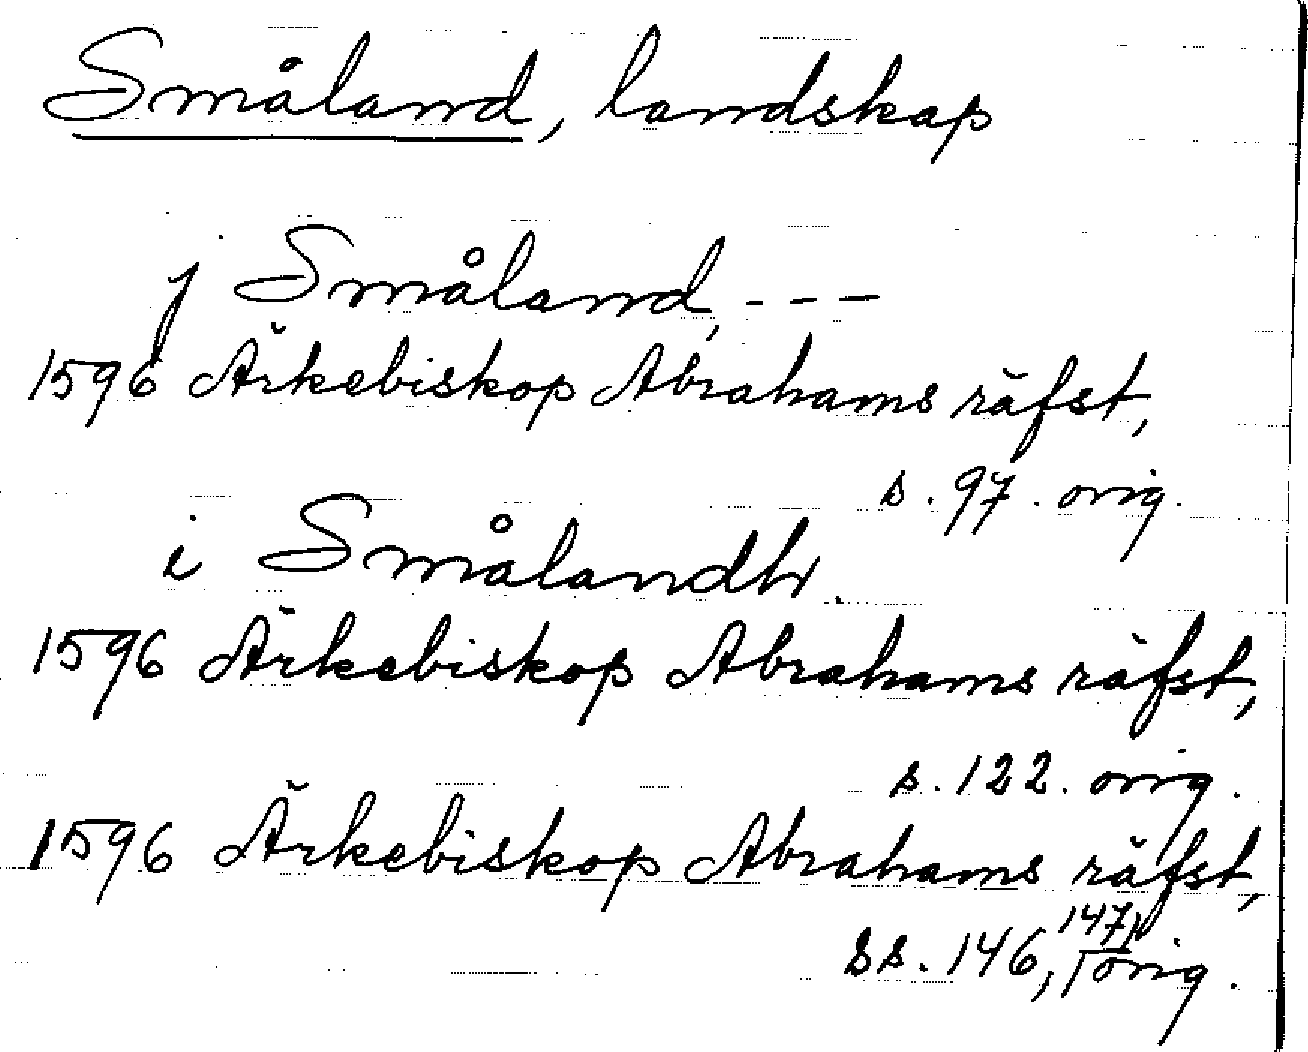 Småland, landskap
j Småland, - - -
1596 Ärkebiskop Abrahams räfst,
s. 97. orig.
i Smålandh.
1596 Ärkebiskop Abrahams räfst,
s. 122. orig.
1596 Ärkebiskop Abrahams räfst,
ss. 146, 147, orig.